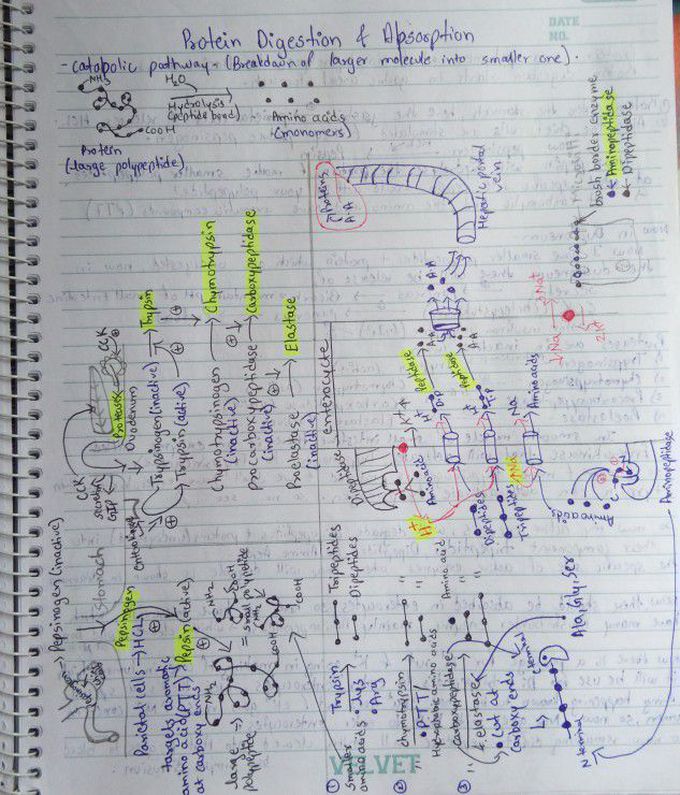 DATE
NO.
Protein Digestion & Absorption
- catabolic pathway - (Breakdown of larger molecule into smaller one).
NH₂
H₂O
Hydrolysis
(peptide bond)
Amino acids
(monomers)
COOH
Protein
(large polypeptide)
→ Pepsinogen (inactive)
stomach
Pepsinogen
Parietal cells → HCL
⊕
Pepsin (active)
targets aromatic
amino acid (PTT)
at carboxy ends
NH₂
COOH
large →
polypeptide
= small polypeptide
NH₂
COOH
CCK
secretin
GIP
CCK
⊕
Proteins
Duodenum
Trypsinogen (inactive)
Trypsin
⊕
Trypsin (active)
⊕
Chymotrypsinogen
(inactive)
Chymotrypsin
⊕
Procarboxypeptidase
(inactive)
Carboxypeptidase
⊕
Proelastase
(inactive)
Elastase
① Trypsin
smaller
amino acids
• Lys
• Arg
Tripeptides
Dipeptides
② chymotrypsin
• PTT/
Hydrophobic amino acids
"
"
③ Carboxypeptidase
Amino acid
& elastase
"
• Cut at
carboxy ends
Ala, Gly, Ser
N terminal
C terminal
enterocyte
Dipeptidase
K⁺
H⁺
Aminoacid
H⁺
Dipeptides
Tripeptides
Na
H⁺
D·P
H⁺
T·P
Na
Aminoacids
Peptidase
Peptidase
A·A
A·A
A·A
Proteins
A·A
Hepatic portal
vein
Aminoacids
C
N
Aminopeptidase
Na⁺
Na
2K⁺
brush border enzyme
Aminopeptidase
Dipeptidase
VELVET